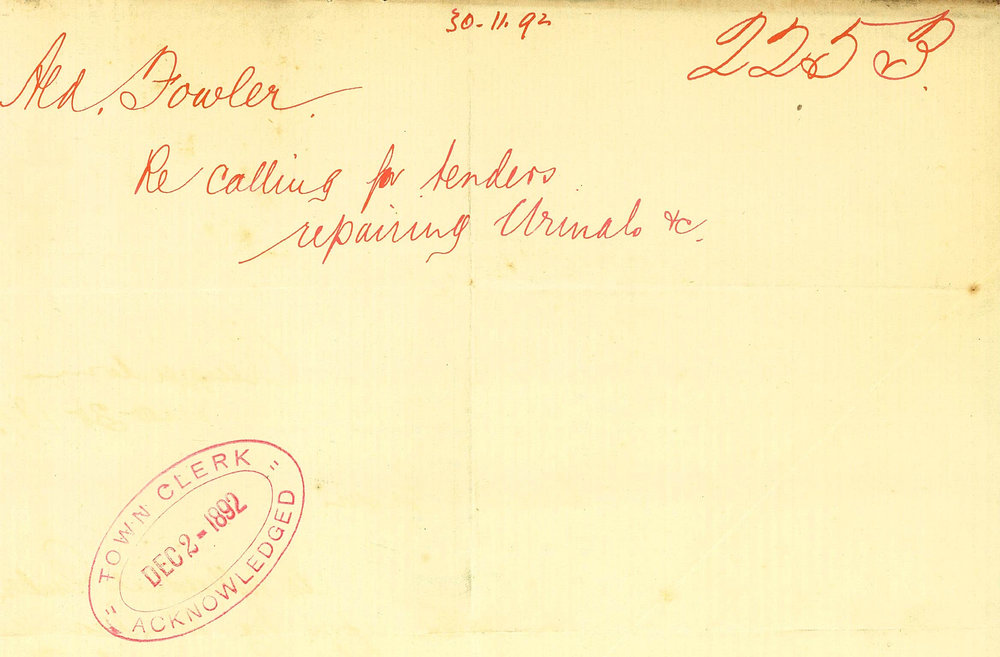 30-11.92
2253
Ald. Fowler.
Re calling for tenders
repairing Urinals &c.
TOWN CLERK
DEC 2-1892
ACKNOWLEDGED